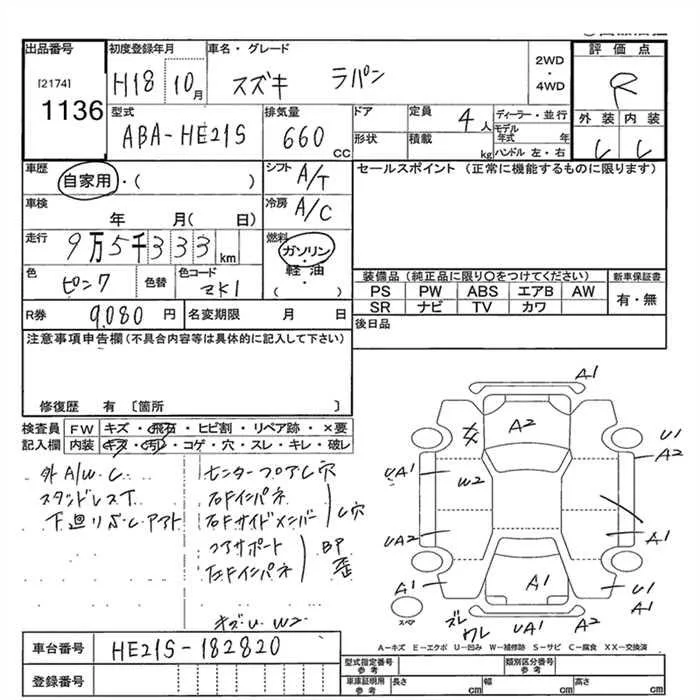 出品番号 初度登録年月 車名・グレード 2WD・4WD 評価点
[2174] 1136 H18 10月 スズキ ラパン R
型式 排気量 ドア 定員 4人 ディーラー・並行 外装 内装
ABA-HE21S 660CC 形状 積載 kg モデル年式 年 ハンドル 左・右
車歴 シフト A/T セールスポイント (正常に機能するものに限ります)
自家用・( )
車検 年 月( 日) 冷房 A/C
走行 9万5千333km 燃料 ガソリン・軽油 ( )
色 ピンク 色替 色コード ZK1
装備品(純正品に限り○をつけてください) 新車保証書
PS PW ABS エアB AW 有・無
SR ナビ TV カワ
R券 9,080円 名変期限 月 日 後日品
注意事項申告欄(不具合内容等は具体的に記入して下さい)
修復歴 有 〔箇所 〕
検査員 FW キズ・飛石・ヒビ割・リペア跡・×要
記入欄 内装 キズ・汚れ・コゲ・穴・スレ・キレ・破レ
外A/W C
スタッドレスT
センターフロアC穴
右Fインパネ
右Fサイドメンバー C穴
コアサポート
左Fインパネ BP 歪
キズU W2
A1
A2
U1
A2
UA1
W2
UA2
A1
A1
A1
U1
A1
スペア
ズレ
ワレ
UA1
A2
A-キズ E-エクボ U-凹み W-補修跡 S-サビ C-腐食 XX-交換済
車台番号 HE21S-182820
型式指定番号 参考 類別区分番号 参考
登録番号
車庫証明用 参考 長さ cm 幅 cm 高さ cm